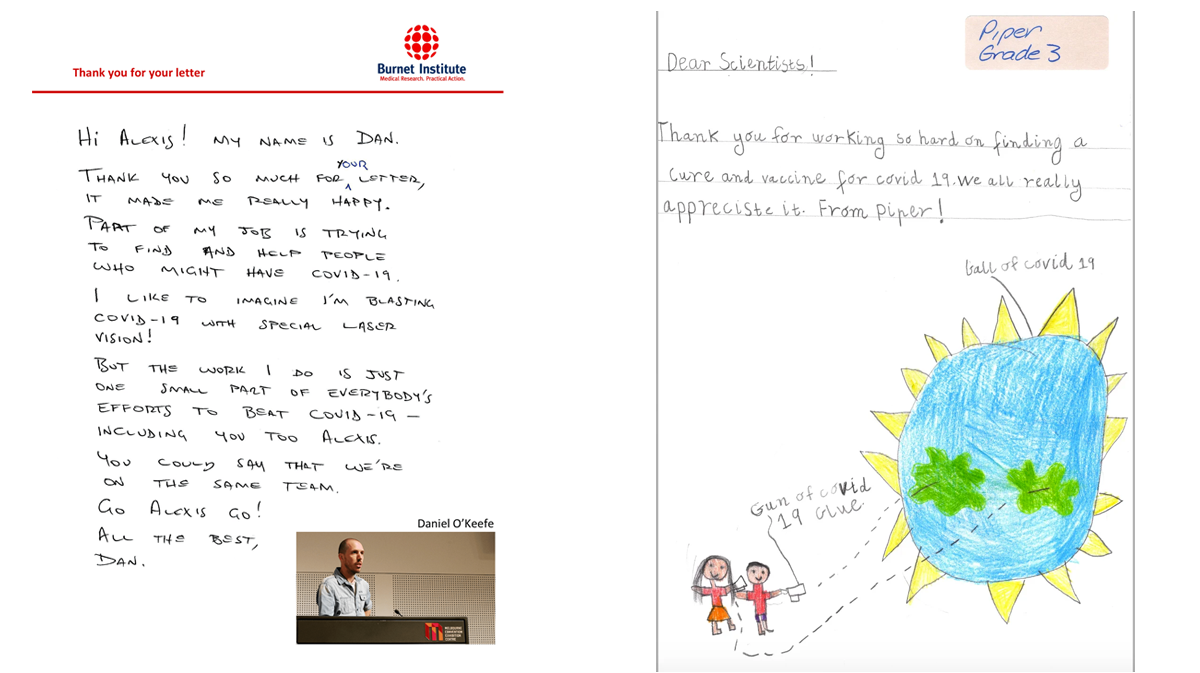 Thank you for your letter
Burnet Institute
Medical Research. Practical Action.
HI ALEXIS! MY NAME IS DAN.
THANK YOU SO MUCH FOR YOUR LETTER,
IT MADE ME REALLY HAPPY.
PART OF MY JOB IS TRYING
TO FIND AND HELP PEOPLE
WHO MIGHT HAVE COVID-19.
I LIKE TO IMAGINE I'M BLASTING
COVID-19 WITH SPECIAL LASER
VISION!
BUT THE WORK I DO IS JUST
ONE SMALL PART OF EVERYBODY'S
EFFORTS TO BEAT COVID-19 –
INCLUDING YOU TOO ALEXIS.
YOU COULD SAY THAT WE'RE
ON THE SAME TEAM.
GO ALEXIS GO!
ALL THE BEST,
DAN.
Daniel O'Keefe
MELBOURNE
CONVENTION
EXHIBITION
CENTRE
Piper
Grade 3
Dear Scientists!
Thank you for working so hard on finding a
cure and vaccine for covid 19. We all really
appreciste it. From Piper!
ball of covid 19
Gun of covid
19 Glue.